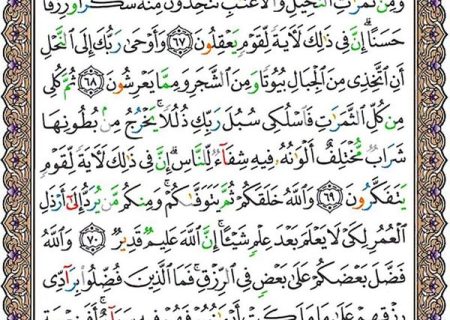 وَمِن ثَمَرَٰتِ ٱلنَّخِيلِ وَٱلْأَعْنَٰبِ تَتَّخِذُونَ مِنْهُ سَكَرًا وَرِزْقًا
حَسَنًا ۗ إِنَّ فِى ذَٰلِكَ لَءَايَةً لِّقَوْمٍ يَعْقِلُونَ ٦٧ وَأَوْحَىٰ رَبُّكَ إِلَى ٱلنَّحْلِ
أَنِ ٱتَّخِذِى مِنَ ٱلْجِبَالِ بُيُوتًا وَمِنَ ٱلشَّجَرِ وَمِمَّا يَعْرِشُونَ ٦٨ ثُمَّ كُلِى
مِن كُلِّ ٱلثَّمَرَٰتِ فَٱسْلُكِى سُبُلَ رَبِّكِ ذُلُلًا ۚ يَخْرُجُ مِنۢ بُطُونِهَا
شَرَابٌ مُّخْتَلِفٌ أَلْوَٰنُهُۥ فِيهِ شِفَآءٌ لِّلنَّاسِ ۗ إِنَّ فِى ذَٰلِكَ لَءَايَةً لِّقَوْمٍ
يَتَفَكَّرُونَ ٦٩ وَٱللَّهُ خَلَقَكُمْ ثُمَّ يَتَوَفَّىٰكُمْ ۚ وَمِنكُم مَّن يُرَدُّ إِلَىٰٓ أَرْذَلِ
ٱلْعُمُرِ لِكَىْ لَا يَعْلَمَ بَعْدَ عِلْمٍ شَيْـًٔا ۚ إِنَّ ٱللَّهَ عَلِيمٌ قَدِيرٌ ٧٠ وَٱللَّهُ
فَضَّلَ بَعْضَكُمْ عَلَىٰ بَعْضٍ فِى ٱلرِّزْقِ ۚ فَمَا ٱلَّذِينَ فُضِّلُوا۟ بِرَآدِّى
رِزْقِهِمْ عَلَىٰ مَا مَلَكَتْ أَيْمَٰنُهُمْ فَهُمْ فِيهِ سَوَآءٌ ۚ أَفَبِنِعْمَةِ